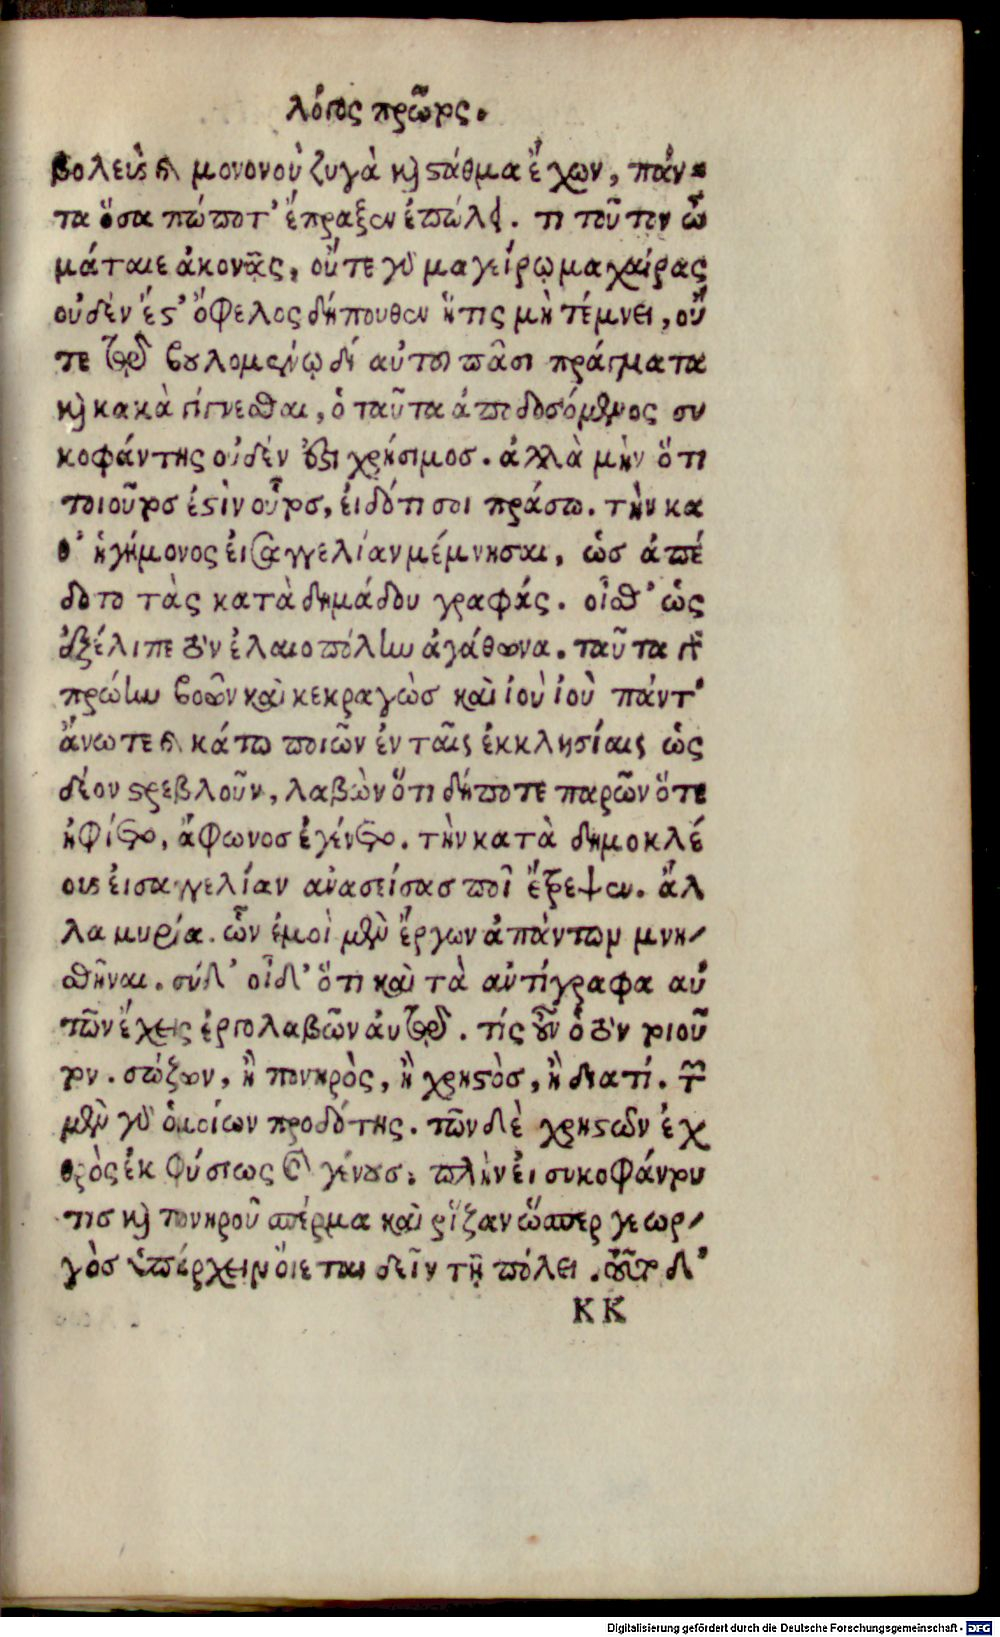 λόγος πρῶτος.
βολεὺς καὶ μονονοὺ ζυγὰ καὶ στάθμα ἔχων, πάν-
τα ὅσα πώποτ' ἔπραξεν ἐπώλει. τί τοῦτον ὦ
μάταιε ἀκονᾷς, οὔτε γὰρ μαγείρῳ μαχαίρας
οὐδέν ἐστ' ὄφελος δήπουθεν ἥτις μὴ τέμνει, οὔ
τε τῷ βουλομένῳ δι' αὐτοῦ πᾶσι πράγματα
καὶ κακὰ γίγνεσθαι, ὁ ταῦτα ἀποδοσόμενος συ
κοφάντης οὐδέν ἐστι χρήσιμος. ἀλλὰ μὴν ὅτι
τοιοῦτος ἐστὶν οὗτος, εἰδότι σοι φράσω. τὴν κα
θ' ἡγήμονος εἰσαγγελίαν μέμνησαι, ὡς ἀπέ
δοτο τὰς κατὰ δημάδου γραφάς. οἶσθ' ὡς
ἐξέλιπε τὸν ἐλαιοπώλην ἀγάθωνα. ταῦτα
πρώην βοῶν καὶ κεκραγὼς καὶ ἰοὺ ἰοὺ πάντ'
ἄνω τε καὶ κάτω ποιῶν ἐν ταῖς ἐκκλησίαις ὡς
δέον στρεβλοῦν, λαβὼν ὅτι δήποτε παρὼν ὅτε
ἠφίετο, ἄφωνος ἐγένετο. τὴν κατὰ δημοκλέ
ους εἰσαγγελίαν ἀνασείσας ποῖ ἔτρεψεν. ἄλ
λα μυρία. ὧν ἐμοὶ μὲν ἔργων ἁπάντων μνη-
σθῆναι. σὺ δ' οἶδ' ὅτι καὶ τὰ ἀντίγραφα αὐ
τῶν ἔχεις ἐργολαβῶν αὐτῷ. τίς οὖν ὁ τὸν τοιοῦ
τον. σώζων, ἢ πονηρὸς, ἢ χρηστὸς, ἢ διατί. τῶν
μὲν γὰρ ὁμοίων προδότης. τῶν δὲ χρηστῶν ἐχ
θρὸς ἐκ φύσεως καὶ γένους. πλὴν εἰ συκοφάντου
τις καὶ πονηροῦ σπέρμα καὶ ῥίζαν ὥσπερ γεωρ-
γὸς ὑπάρχειν οἴεται δεῖν τῇ πόλει. τοῦτο δ'
KK
Digitalisierung gefördert durch die Deutsche Forschungsgemeinschaft - DFG